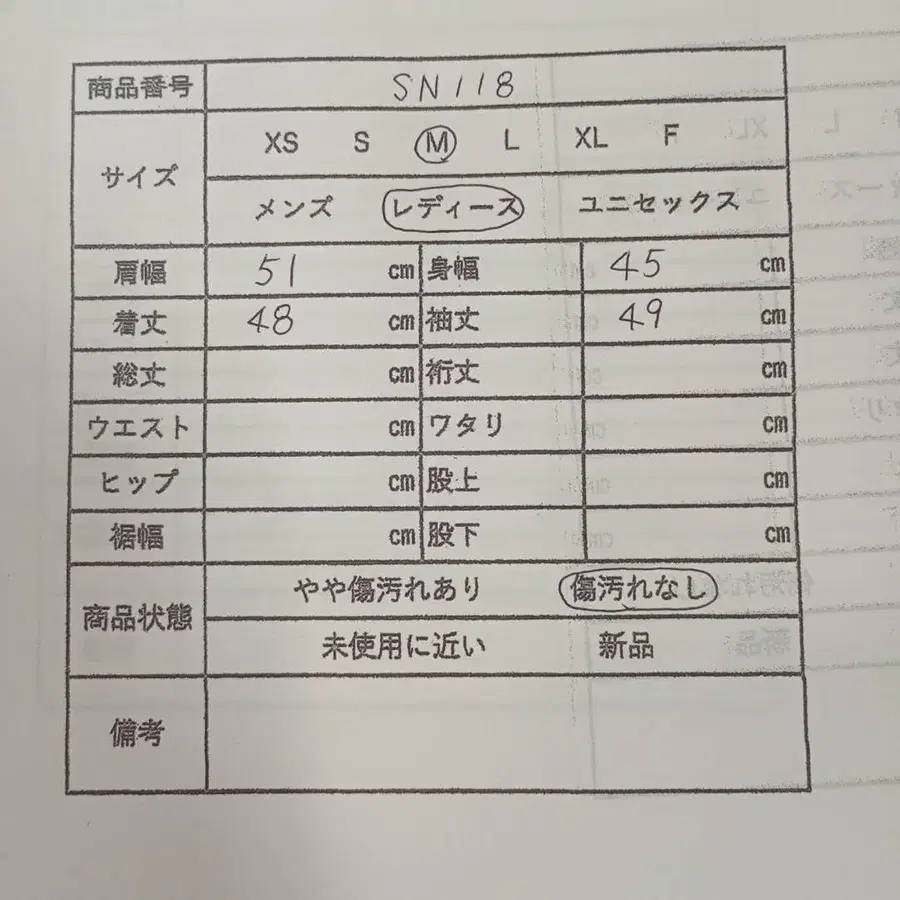 商品番号 SN118
サイズ XS S M L XL F
メンズ レディース ユニセックス
肩幅 51 cm 身幅 45 cm
着丈 48 cm 袖丈 49 cm
総丈 cm 裄丈 cm
ウエスト cm ワタリ cm
ヒップ cm 股上 cm
裾幅 cm 股下 cm
商品状態 やや傷汚れあり 傷汚れなし
未使用に近い 新品
備考